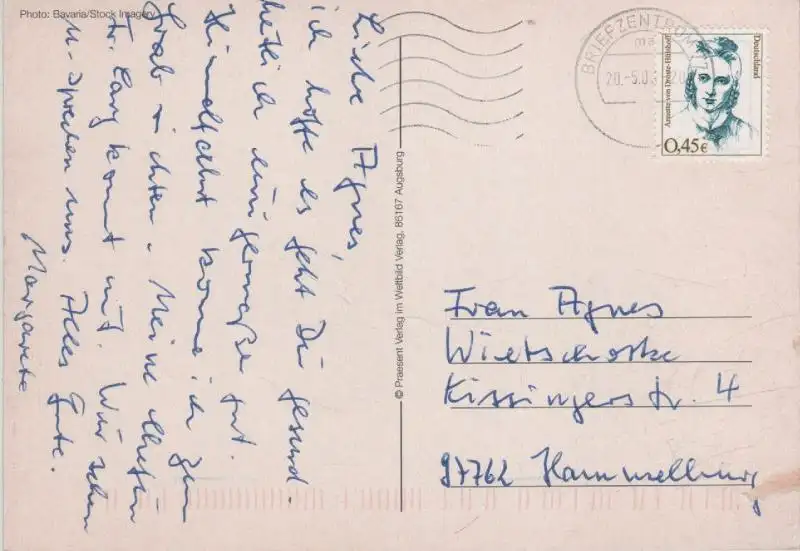 Photo: Bavaria/Stock Imagery
Liebe Agnes,
ich hoffe es geht Dir gesund-
heitlich einigermaßen gut.
Himmelfahrt komme ich zum
Grab richten. Meine Chefin
Fr. Lang kommt mit. Wir sehen
u. sprechen uns. Alles Gute.
Margarete
© Praesent Verlag im Weltbild Verlag, 86167 Augsburg
BRIEFZENTRUM
20.-5.03
Deutschland
Annette von Droste-Hülshoff
0,45€
Frau Agnes
Wietschorke
Kissingerstr. 4
97762 Hammelburg